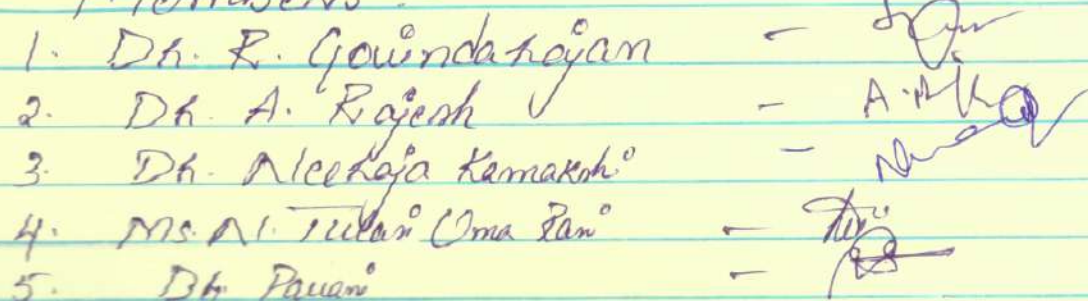 Members
1. Dr. R. Govindarajan -
2. Dr. A. Rajesh -
3. Dr. Neeraja Kamakshi -
4. Ms. N. Tulasi Uma Rani -
5. Dr. Pavani -